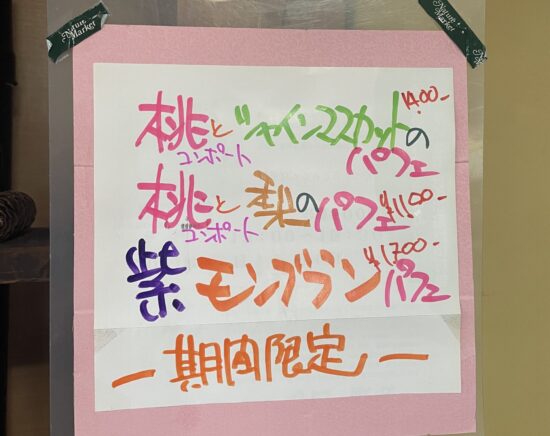 Nature Market
Nature Market
桃とシャインマスカットの 1400-
コンポート パフェ
桃と梨のパフェ ¥1,100-
コンポート
紫モンブランパフェ ¥1,700-
ー期間限定ー